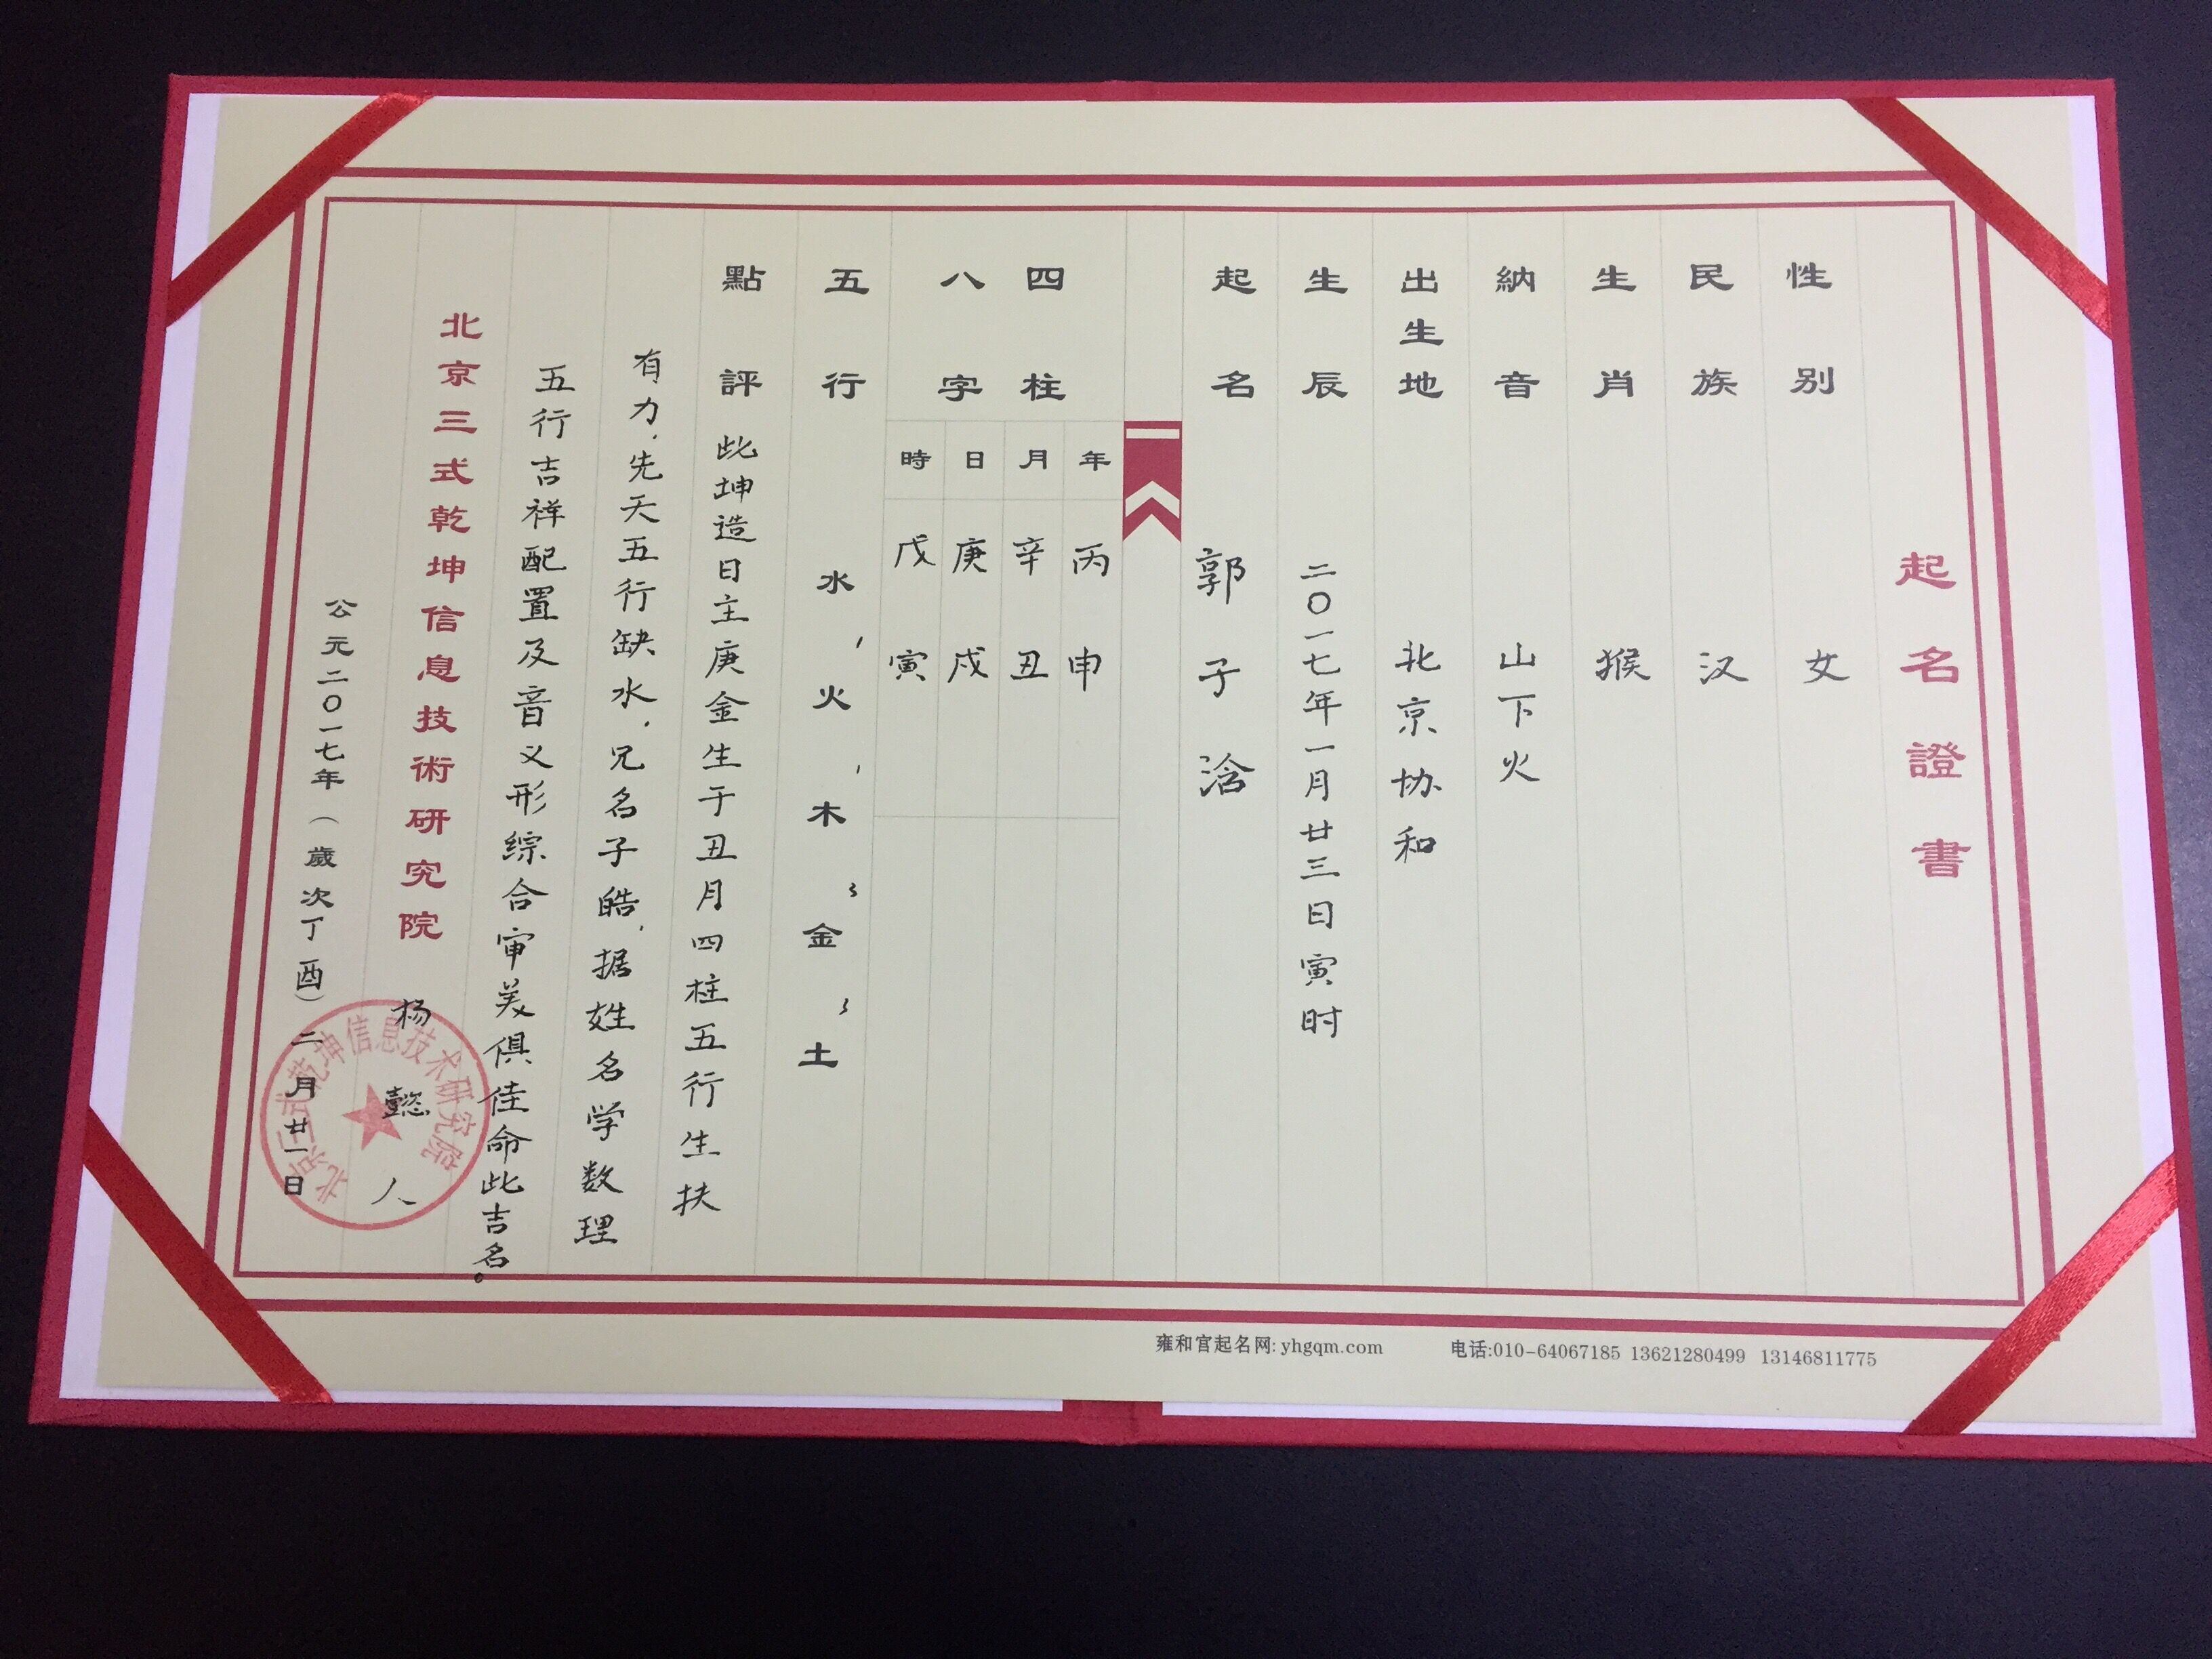 起名證書
性别 女
民族 汉
生肖 猴
納音 山下火
出生地 北京协和
生辰 二〇一七年一月廿三日寅时
起名 郭子浛
四柱
八字
年 丙申
月 辛丑
日 庚戌
時 戊寅
五行 水，火，木ミ金ミ土
點評 此坤造日主庚金生于丑月四柱五行生扶
有力，先天五行缺水，兄名子皓，据姓名学数理
五行吉祥配置及音义形综合审美俱佳命此吉名。
北京三式乾坤信息技術研究院 杨懿人
公元二〇一七年（歲次丁酉）二月廿一日
北京三式乾坤信息技术研究院
雍和宫起名网: yhgqm.com 电话:010-64067185 13621280499 13146811775